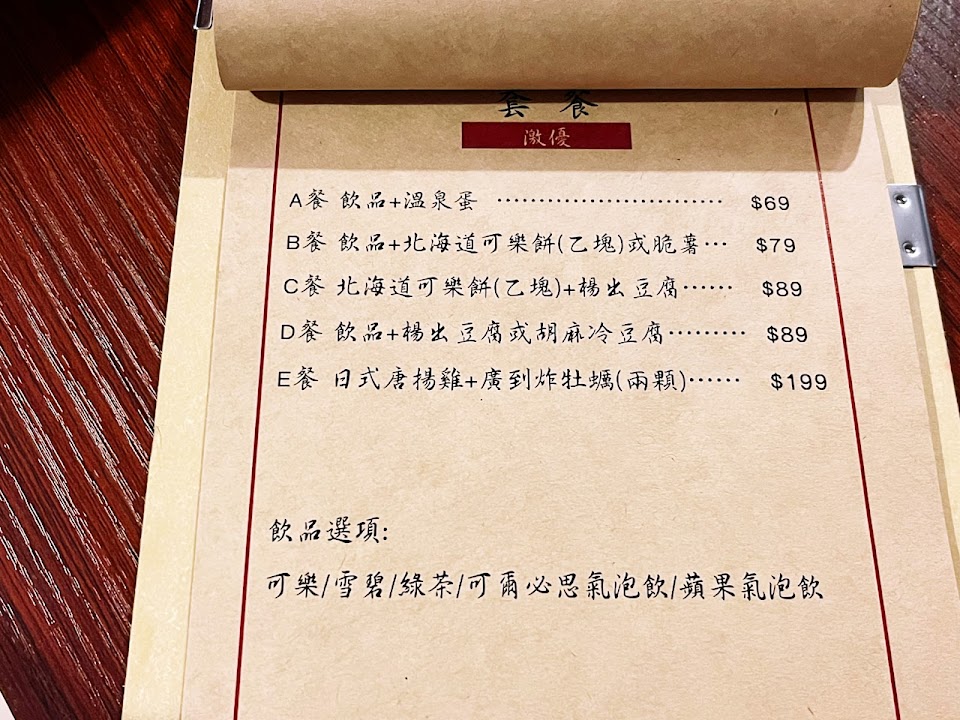 套餐
激優
A餐 飲品+溫泉蛋 ………………………… $69
B餐 飲品+北海道可樂餅(乙塊)或脆薯… $79
C餐 北海道可樂餅(乙塊)+楊出豆腐…… $89
D餐 飲品+楊出豆腐或胡麻冷豆腐……… $89
E餐 日式唐揚雞+廣到炸牡蠣(兩顆)…… $199
飲品選項:
可樂/雪碧/綠茶/可爾必思氣泡飲/蘋果氣泡飲